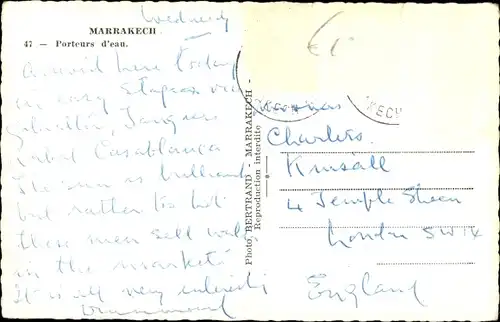 Wednesday
MARRAKECH
47 — Porteurs d'eau.
Arrived here today
in easy stages via
Gibraltar, Tangiers
Rabat Casablanca
The sun is brilliant
but rather too hot
these men sell water
in the markets
It is all very interesting
Photo. BERTRAND - MARRAKECH -
Reproduction interdite
Charles
Kinsall
4 Temple Sheen
London SW14
England